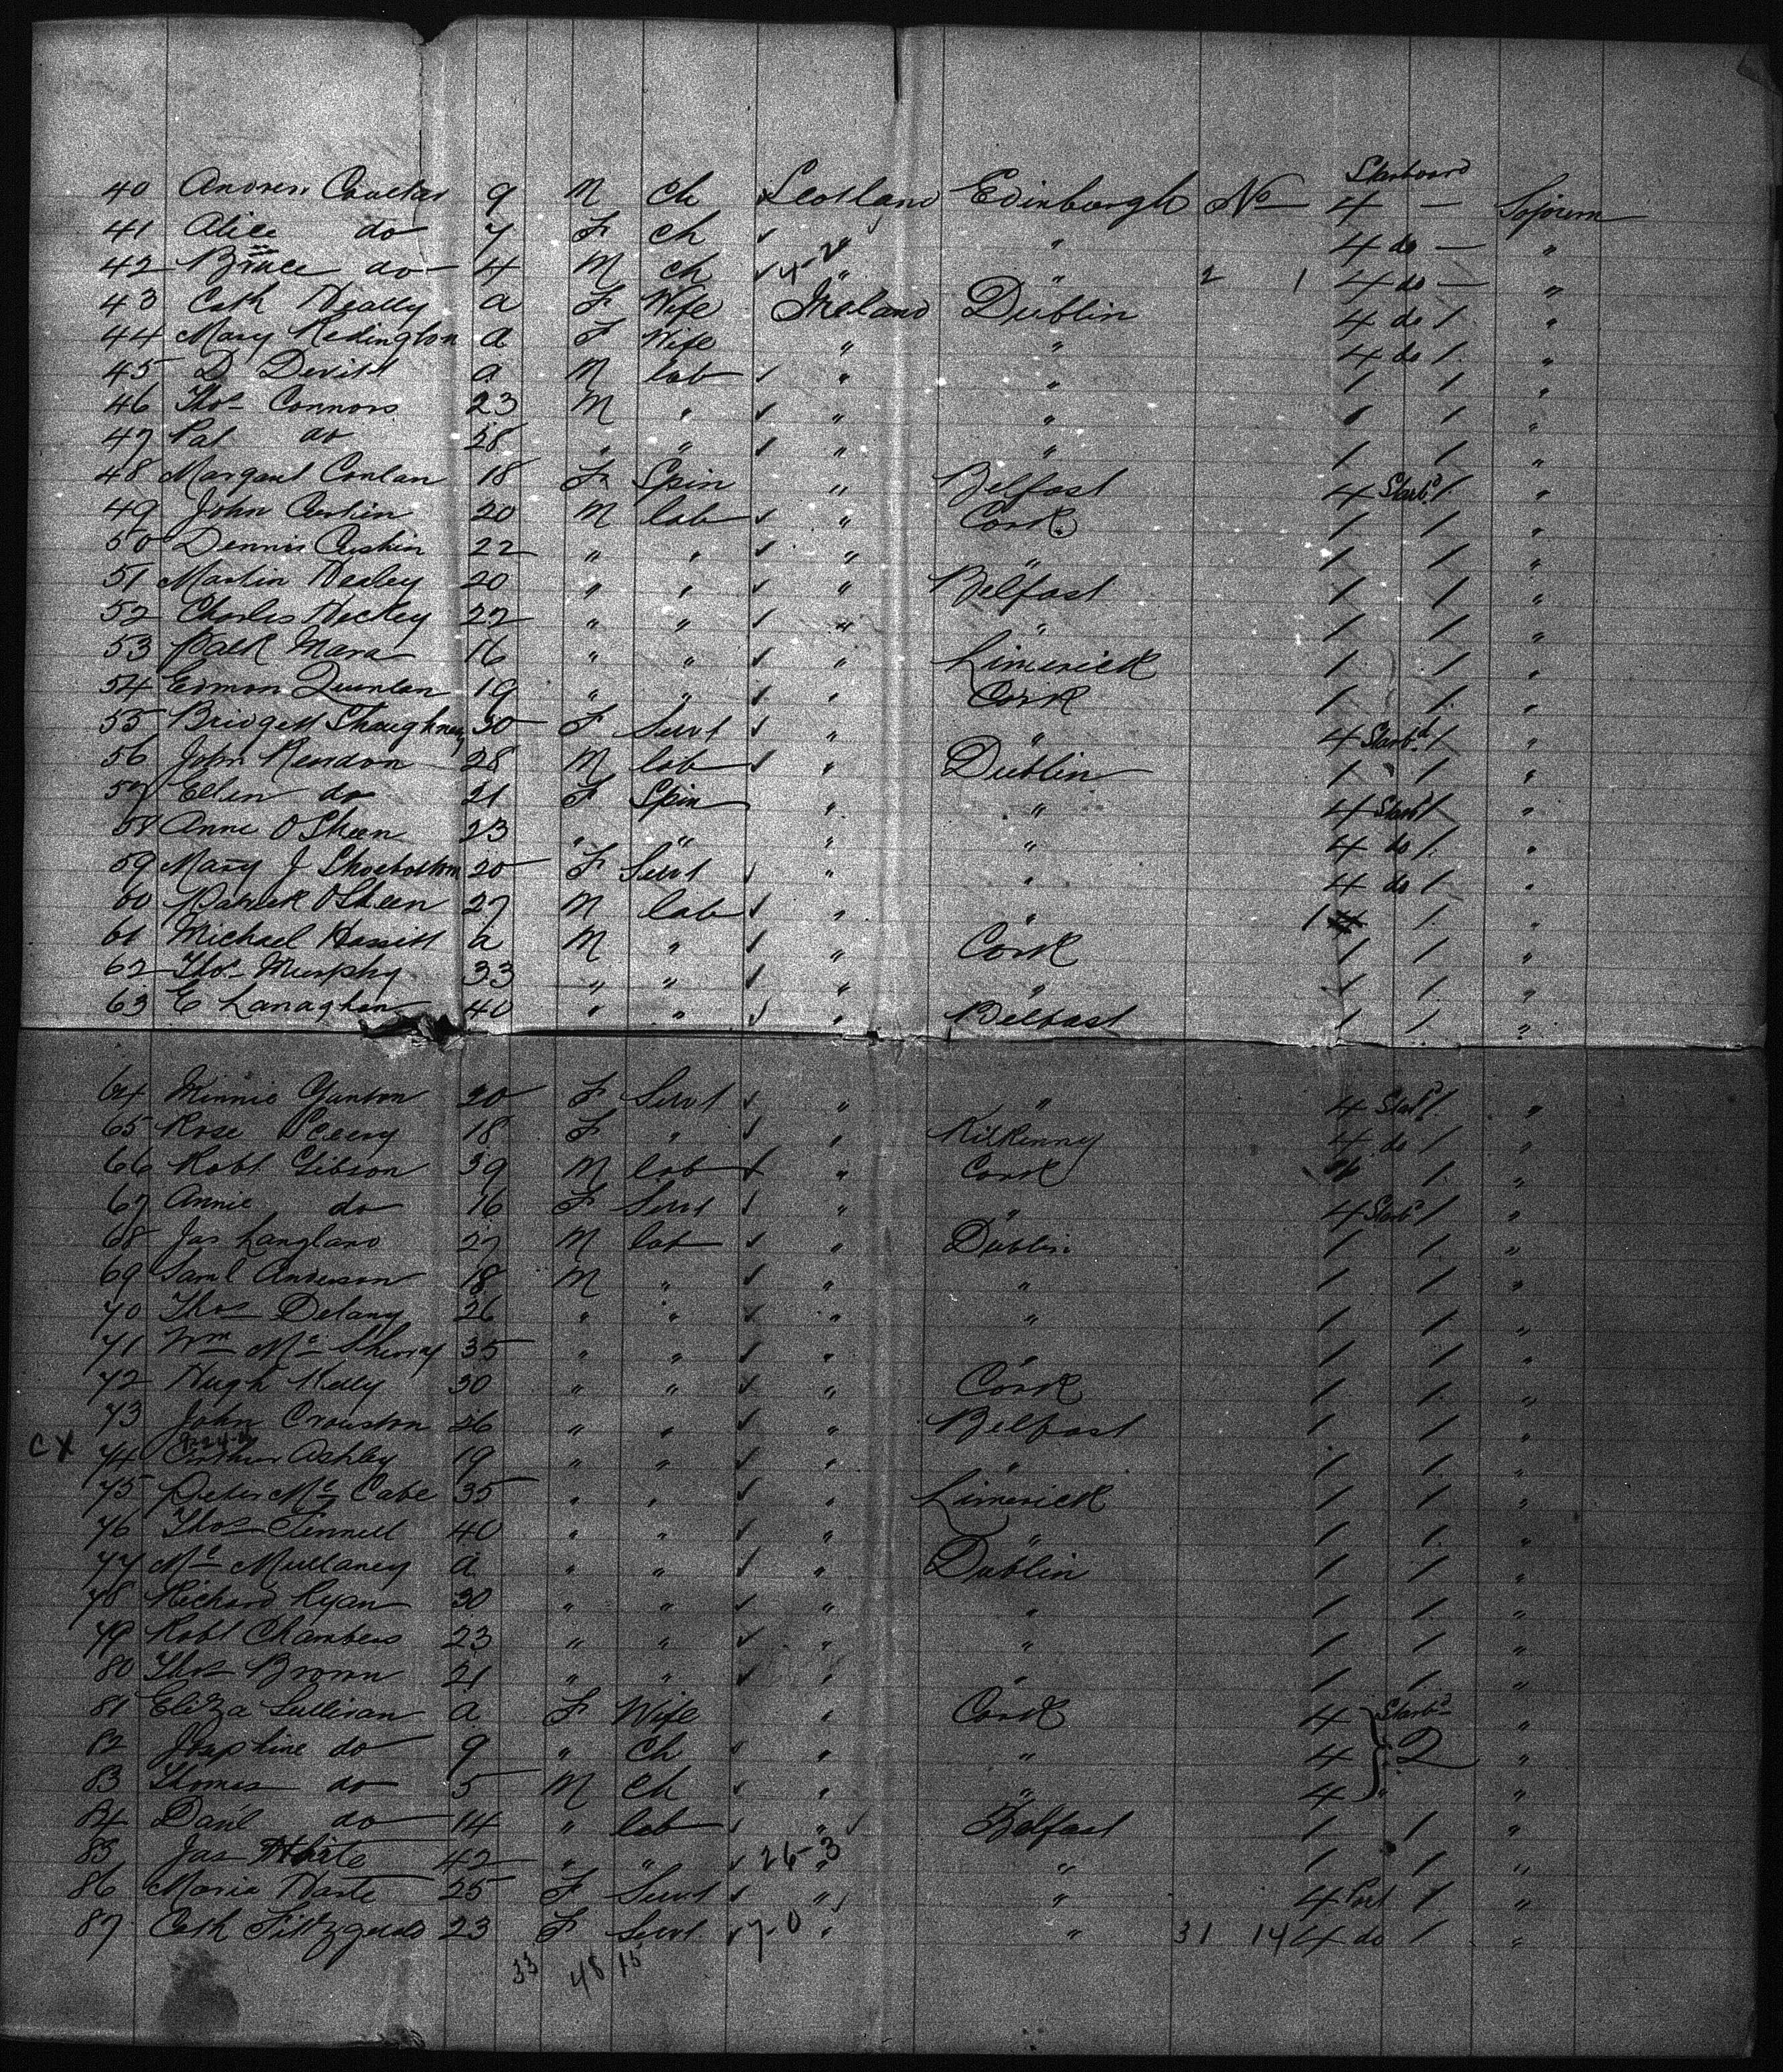 Starboard
40 Andrew Coulter 9 M ch Scotland Edinburgh No 4 — Sojourn
41 Alice do 7 F ch ✓ " 4 do — "
42 Bruce do 4 M ch ✓ " " 2 1 4 do — "
43 Cath Neally a F Wife Ireland Dublin 4 do / "
44 Mary Redington a F Wife " " 4 do / "
45 D Devitt a M lab ✓ " " 1 / "
46 Thos Connors 23 M " ✓ " " 1 / "
47 Pat do 28 " " ✓ " " 1 / "
48 Margaret Conlan 18 F Spin " Belfast 4 Starbd / "
49 John 20 M lab ✓ " Cork 1 / "
50 Dennis 22 " " ✓ " " 1 / "
51 Martin Healey 20 " " ✓ " Belfast 1 / "
52 Charles Hickey 22 " " ✓ " " 1 / "
53 Patk Mara 16 " " ✓ " Limerick 1 / "
54 Edmon Quinlan 19 " " ✓ " Cork 1 / "
55 Bridgett Shaughnesy 30 F Servt ✓ " " 4 Starbd / "
56 John Reardon 28 M lab ✓ " Dublin 1 / "
57 Ellen do 21 F Spin " " 4 Starbd / "
58 Anne O Sheen 23 " " " " 4 do / "
59 Mary J 20 F Servt ✓ " " 4 do / "
60 Patrick O Sheen 27 M lab ✓ " " 1 / "
61 Michael Hassitt a M " ✓ " Cork 1 / "
62 Thos Murphy 33 " " ✓ " " 1 / "
63 E Lanaghan 40 " " ✓ " Belfast 1 / "
64 Minnie 20 F Servt ✓ " " 4 Starbd / "
65 Rose 18 F " ✓ " Kilkenny 4 do / "
66 Robt Gibson 39 M lab ✓ " Cork / "
67 Annie do 16 F Servt ✓ " " 4 Starbd / "
68 Jas Langland 27 M lab ✓ " Dublin 1 / "
69 Saml Anderson 18 M " ✓ " " 1 / "
70 Thos Delany 26 " " ✓ " " 1 / "
71 Wm Mc Sherry 35 " " ✓ " " 1 / "
72 Hugh Kelly 30 " " ✓ " Cork 1 / "
73 John Crouston 26 " " ✓ " Belfast 1 / "
CX 74 Arthur Ashley 19 " " ✓ " " 1 / "
75 Peter Mc Cabe 35 " " ✓ " Limerick 1 / "
76 Thos 40 " " ✓ " " 1 / "
77 Mc Mullaney a " " ✓ " Dublin 1 / "
78 Richard Ryan 30 " " ✓ " " 1 / "
79 Robt Chambers 23 " " ✓ " " 1 / "
80 Thos Brown 21 " " ✓ " " 1 / "
81 Eliza Sullivan a F Wife " Cork 4 Starbd "
82 Josephine do 9 " Ch ✓ " " 4 2 "
83 Thomas do 5 M Ch ✓ " " 4 " "
84 Danl do 14 " lab ✓ " Belfast 1 / "
85 Jas White 42 " " ✓ 26-3 " " 1 / "
86 Maria Harte 25 F Servt ✓ " " 4 Port / "
87 Cath Fittzgerald 23 F Servt ✓ 7-0 " " 31 14 4 do / "
33 48 15